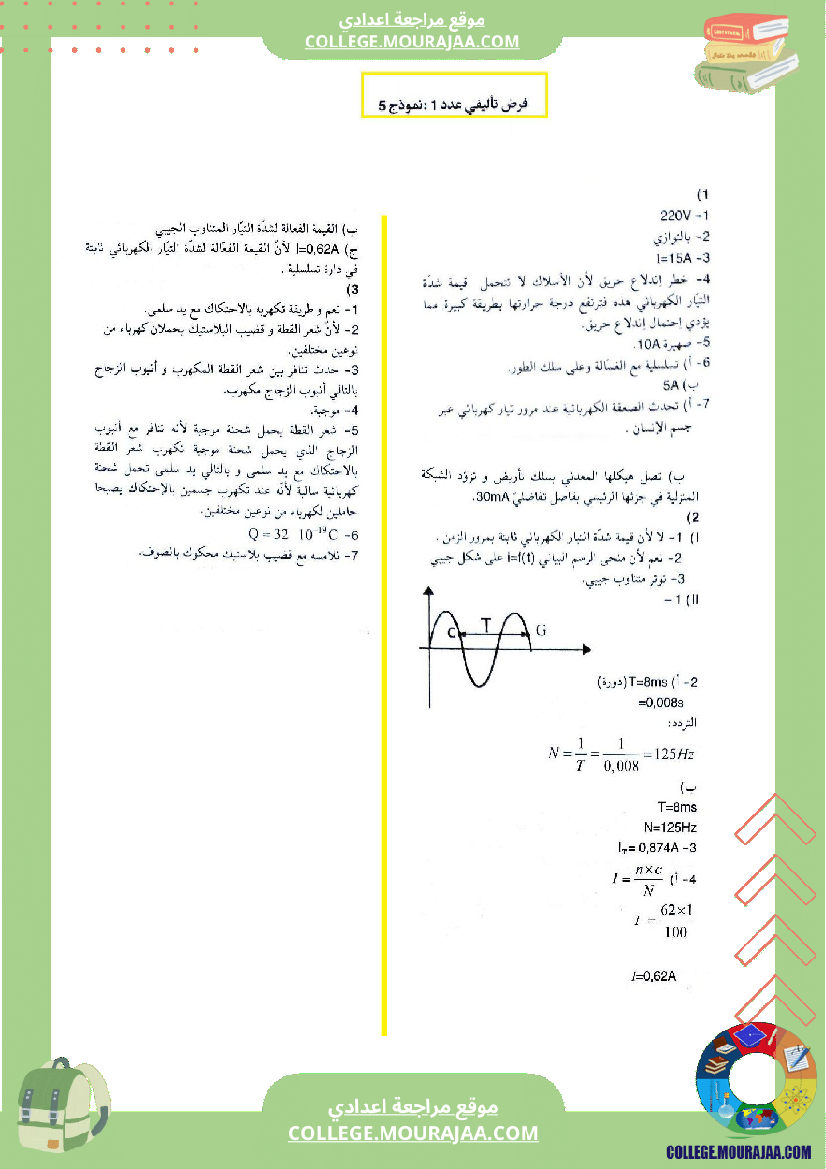 موقع مراجعة اعدادي
COLLEGE.MOURAJAA.COM
فرض تأليفي عدد 1 :نموذج 5
1)
1- 220V
2- بالتوازي
3- I=15A
4- خطر إندلاع حريق لأن الأسلاك لا تتحمل قيمة شدّة
التيّار الكهربائي هذه فترتفع درجة حرارتها بطريقة كبيرة مما
يؤدي إحتمال إندلاع حريق.
5- صهيرة 10A.
6- أ) تسلسلية مع الغسّالة وعلى سلك الطور.
ب) 5A
7- أ) تحدث الصعقة الكهربائية عند مرور تيار كهربائي عبر
جسم الإنسان .
ب) تصل هيكلها المعدني بسلك تأريض و تزوّد الشبكة
المنزلية في جزئها الرئيسي بفاصل تفاضليّ 30mA.
2)
I) 1- لا لأن قيمة شدّة التيار الكهربائي ثابتة بمرور الزمن .
2- نعم لأن منحى الرسم البياني i=f(t) على شكل جيبي
3- توتر متناوب جيبي.
II) 1 –
C T G
2- أ) T=8ms (دورة)
=0,008s
التردد:
N = 1/T = 1/0,008 = 125Hz
ب)
T=8ms
N=125Hz
3- I_T= 0,874A
4- أ) I = n×c/N
I = 62×1/100
I=0,62A
ب) القيمة الفعالة لشدّة التيّار المتناوب الجيبي
ج) I=0,62A لأنّ القيمة الفعّالة لشدّة التيّار الكهربائي ثابتة
في دارة تسلسلية .
3)
1- نعم و طريقة تكهربه بالاحتكاك مع يد سلمى.
2- لأنّ شعر القطة و قضيب البلاستيك يحملان كهرباء من
نوعين مختلفين.
3- حدث تنافر بين شعر القطة المكهرب و أنبوب الزجاج
بالتالي أنبوب الزجاج مكهرب.
4- موجبة.
5- شعر القطة يحمل شحنة موجبة لأنه تنافر مع أنبوب
الزجاج الذي يحمل شحنة موجبة تكهرب شعر القطة
بالاحتكاك مع يد سلمى و بالتالي يد سلمى تحمل شحنة
كهربائية سالبة لأنّه عند تكهرب جسمين بالإحتكاك يصبحا
حاملين لكهرباء من نوعين مختلفين.
6- Q = 32 10⁻¹⁹C
7- تلامسه مع قضيب بلاستيك محكوك بالصوف.
موقع مراجعة اعدادي
COLLEGE.MOURAJAA.COM
COLLEGE.MOURAJAA.COM